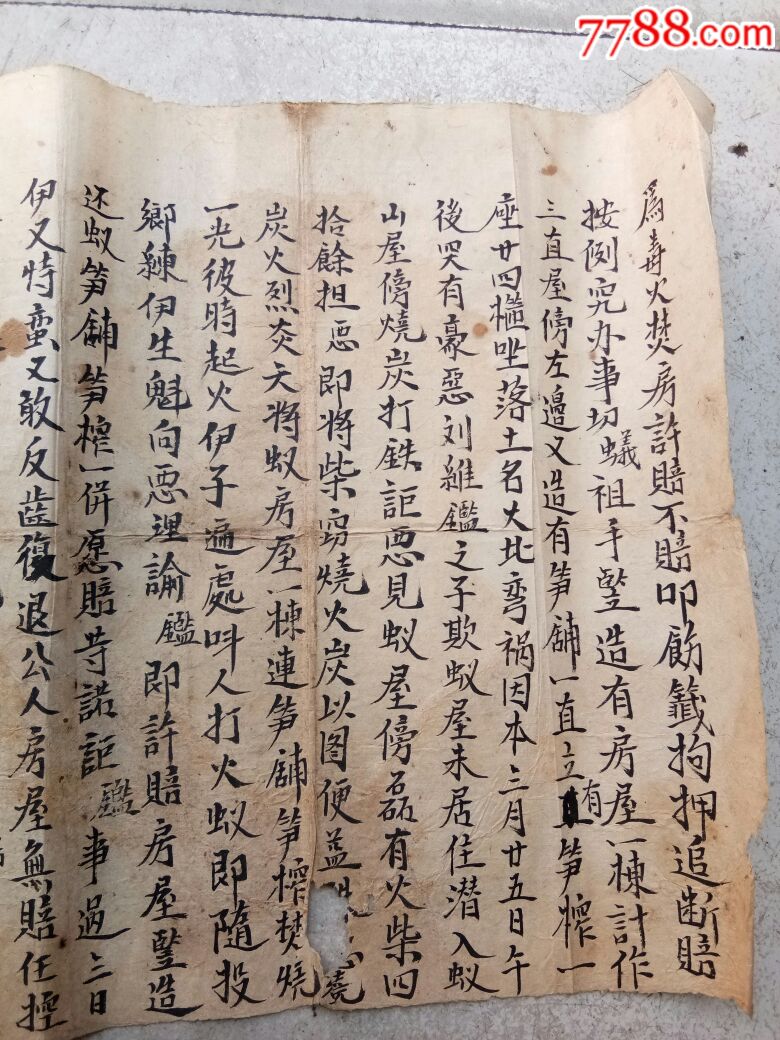 7788.com
為壽火焚房許賠不賠叩飭籤拘押追断賠
按例究办事切蟻祖手豎造有房屋一棟計作
三直屋傍左邉又造有笋舖一直立有笋榨一
座廿四楹坐落土名大北弯祸因本三月廿五日午
後哭有豪惡刘維鑑之子欺蚁屋未居住潜入蚁
山屋傍燒炭打鉄詎悪見蚁屋傍磊有火柴四
拾餘担悪即将柴窃燒火炭以图便益燒
炭火烈炎天將蚁房屋一棟連笋舖笋榨焚燒
一光彼時起火伊子遍處呌人打火蚁即隨投
鄉練伊生魁向悪理論鑑即許賠房屋豎造
还蚁笋舖笋榨一併愿賠等諾詎鑑事過三日
伊又恃蛮又敢反齒復退公人房屋無賠任控